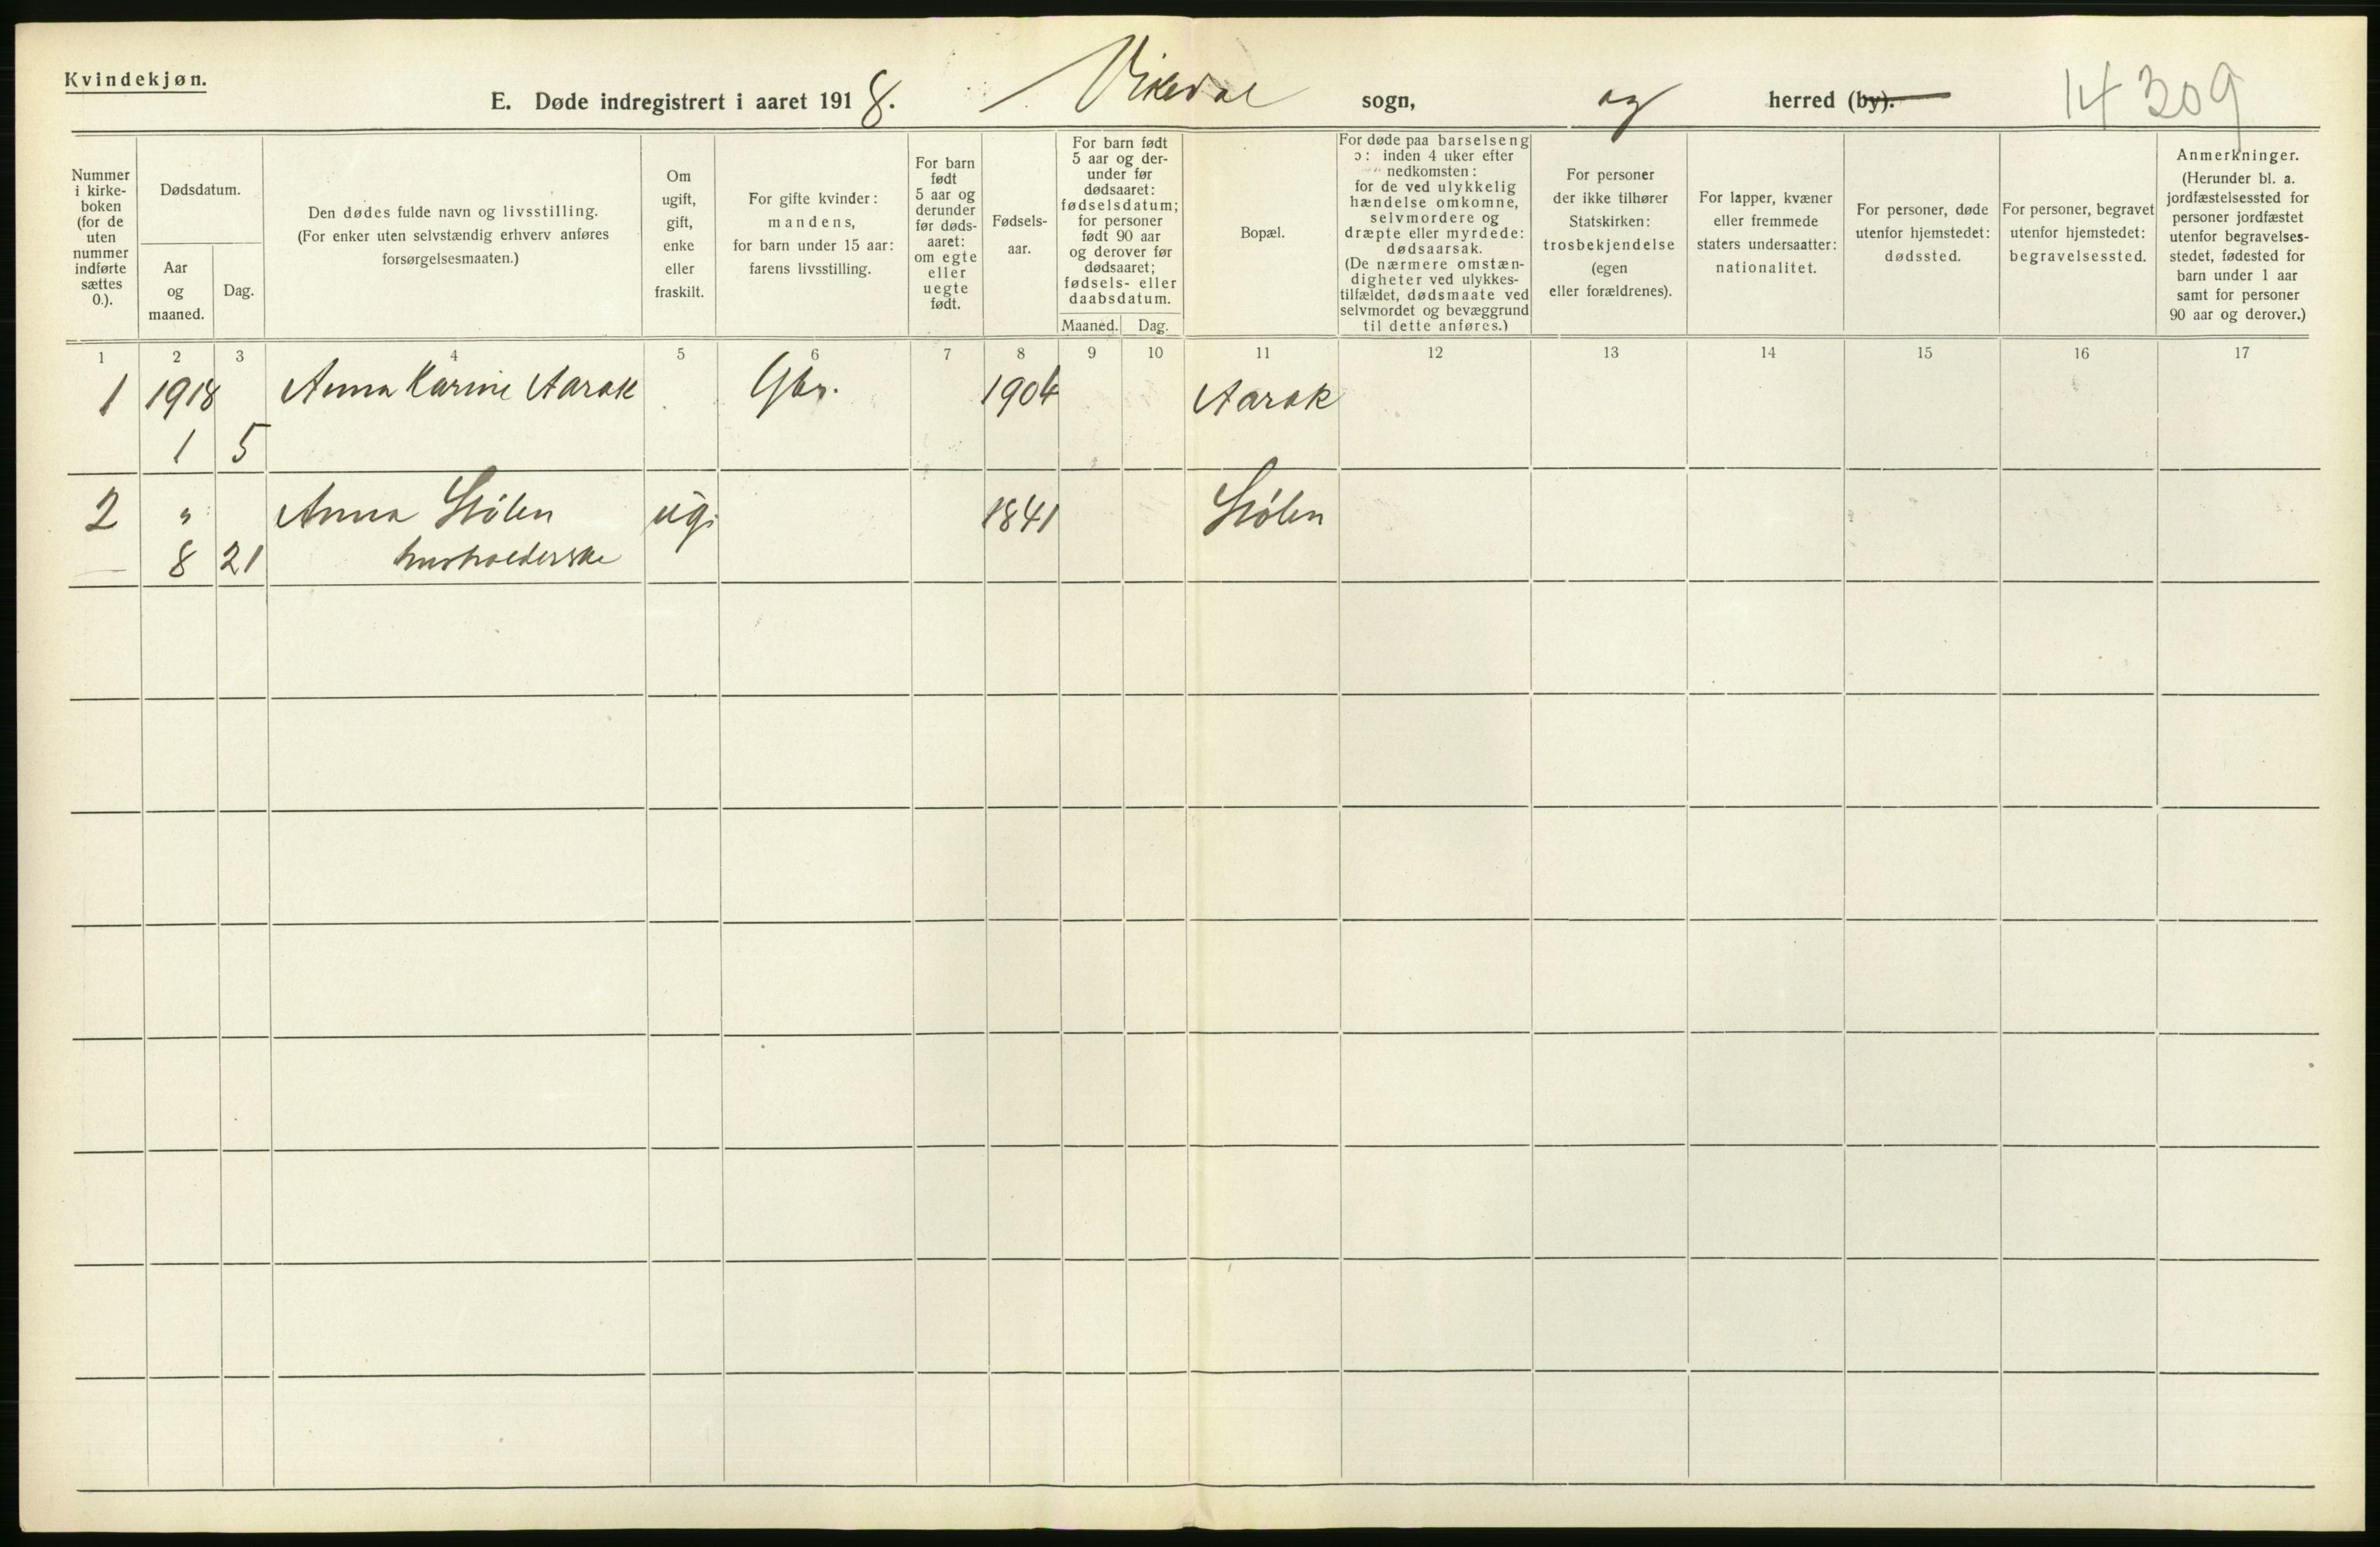 Kvindekjøn.
E. Døde indregistrert i aaret 1918. Vikedal sogn, og herred (by).
14 309
Nummer
i kirke-
boken
(for de
uten
nummer
indførte
sættes
0.).
Dødsdatum.
Aar
og
maaned.
Dag.
Den dødes fulde navn og livsstilling.
(For enker uten selvstændig erhverv anføres
forsørgelsesmaaten.)
Om
ugift,
gift,
enke
eller
fraskilt.
For gifte kvinder:
mandens,
for barn under 15 aar:
farens livsstilling.
For barn
født
5 aar og
derunder
før døds-
aaret:
om egte
eller
uegte
født.
Fødsels-
aar.
For barn født
5 aar og der-
under før
dødsaaret:
fødselsdatum;
for personer
født 90 aar
og derover før
dødsaaret;
fødsels- eller
daabsdatum.
Maaned. Dag.
Bopæl.
For døde paa barselseng
ɔ: inden 4 uker efter
nedkomsten:
for de ved ulykkelig
hændelse omkomne,
selvmordere og
dræpte eller myrdede:
dødsaarsak.
(De nærmere omstæn-
digheter ved ulykkes-
tilfældet, dødsmaate ved
selvmordet og bevæggrund
til dette anføres.)
For personer
der ikke tilhører
Statskirken:
trosbekjendelse
(egen
eller forældrenes).
For lapper, kvæner
eller fremmede
staters undersaatter:
nationalitet.
For personer, døde
utenfor hjemstedet:
dødssted.
For personer, begravet
utenfor hjemstedet:
begravelsessted.
Anmerkninger.
(Herunder bl. a.
jordfæstelsessted for
personer jordfæstet
utenfor begravelses-
stedet, fødested for
barn under 1 aar
samt for personer
90 aar og derover.)
1 2 3 4 5 6 7 8 9 10 11 12 13 14 15 16 17
1 1918 Anna Karine Aarak Gbr. 1904 Aarak
1 5
2 " Anna Stølen ug. 1841 Stølen
8 21 husholderske